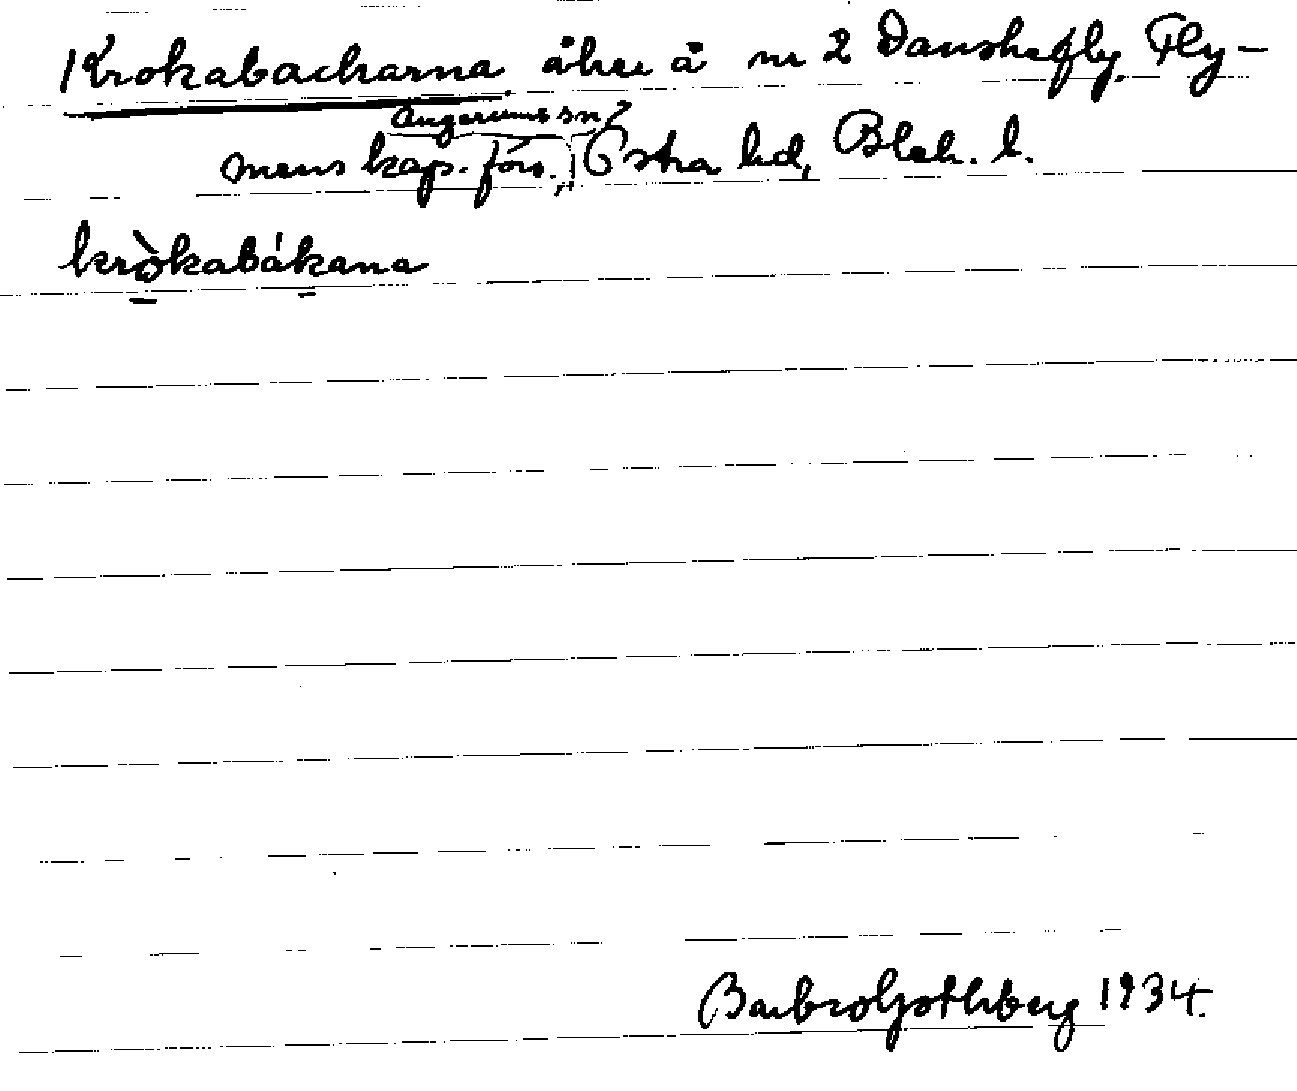 Krokabackarna åker å nr 2 Danskefly, Fly-
Augerums sn,
mens kap. förs., Östra hd, Blek. l.
kròkabákana
Barbro Gothberg 1934.